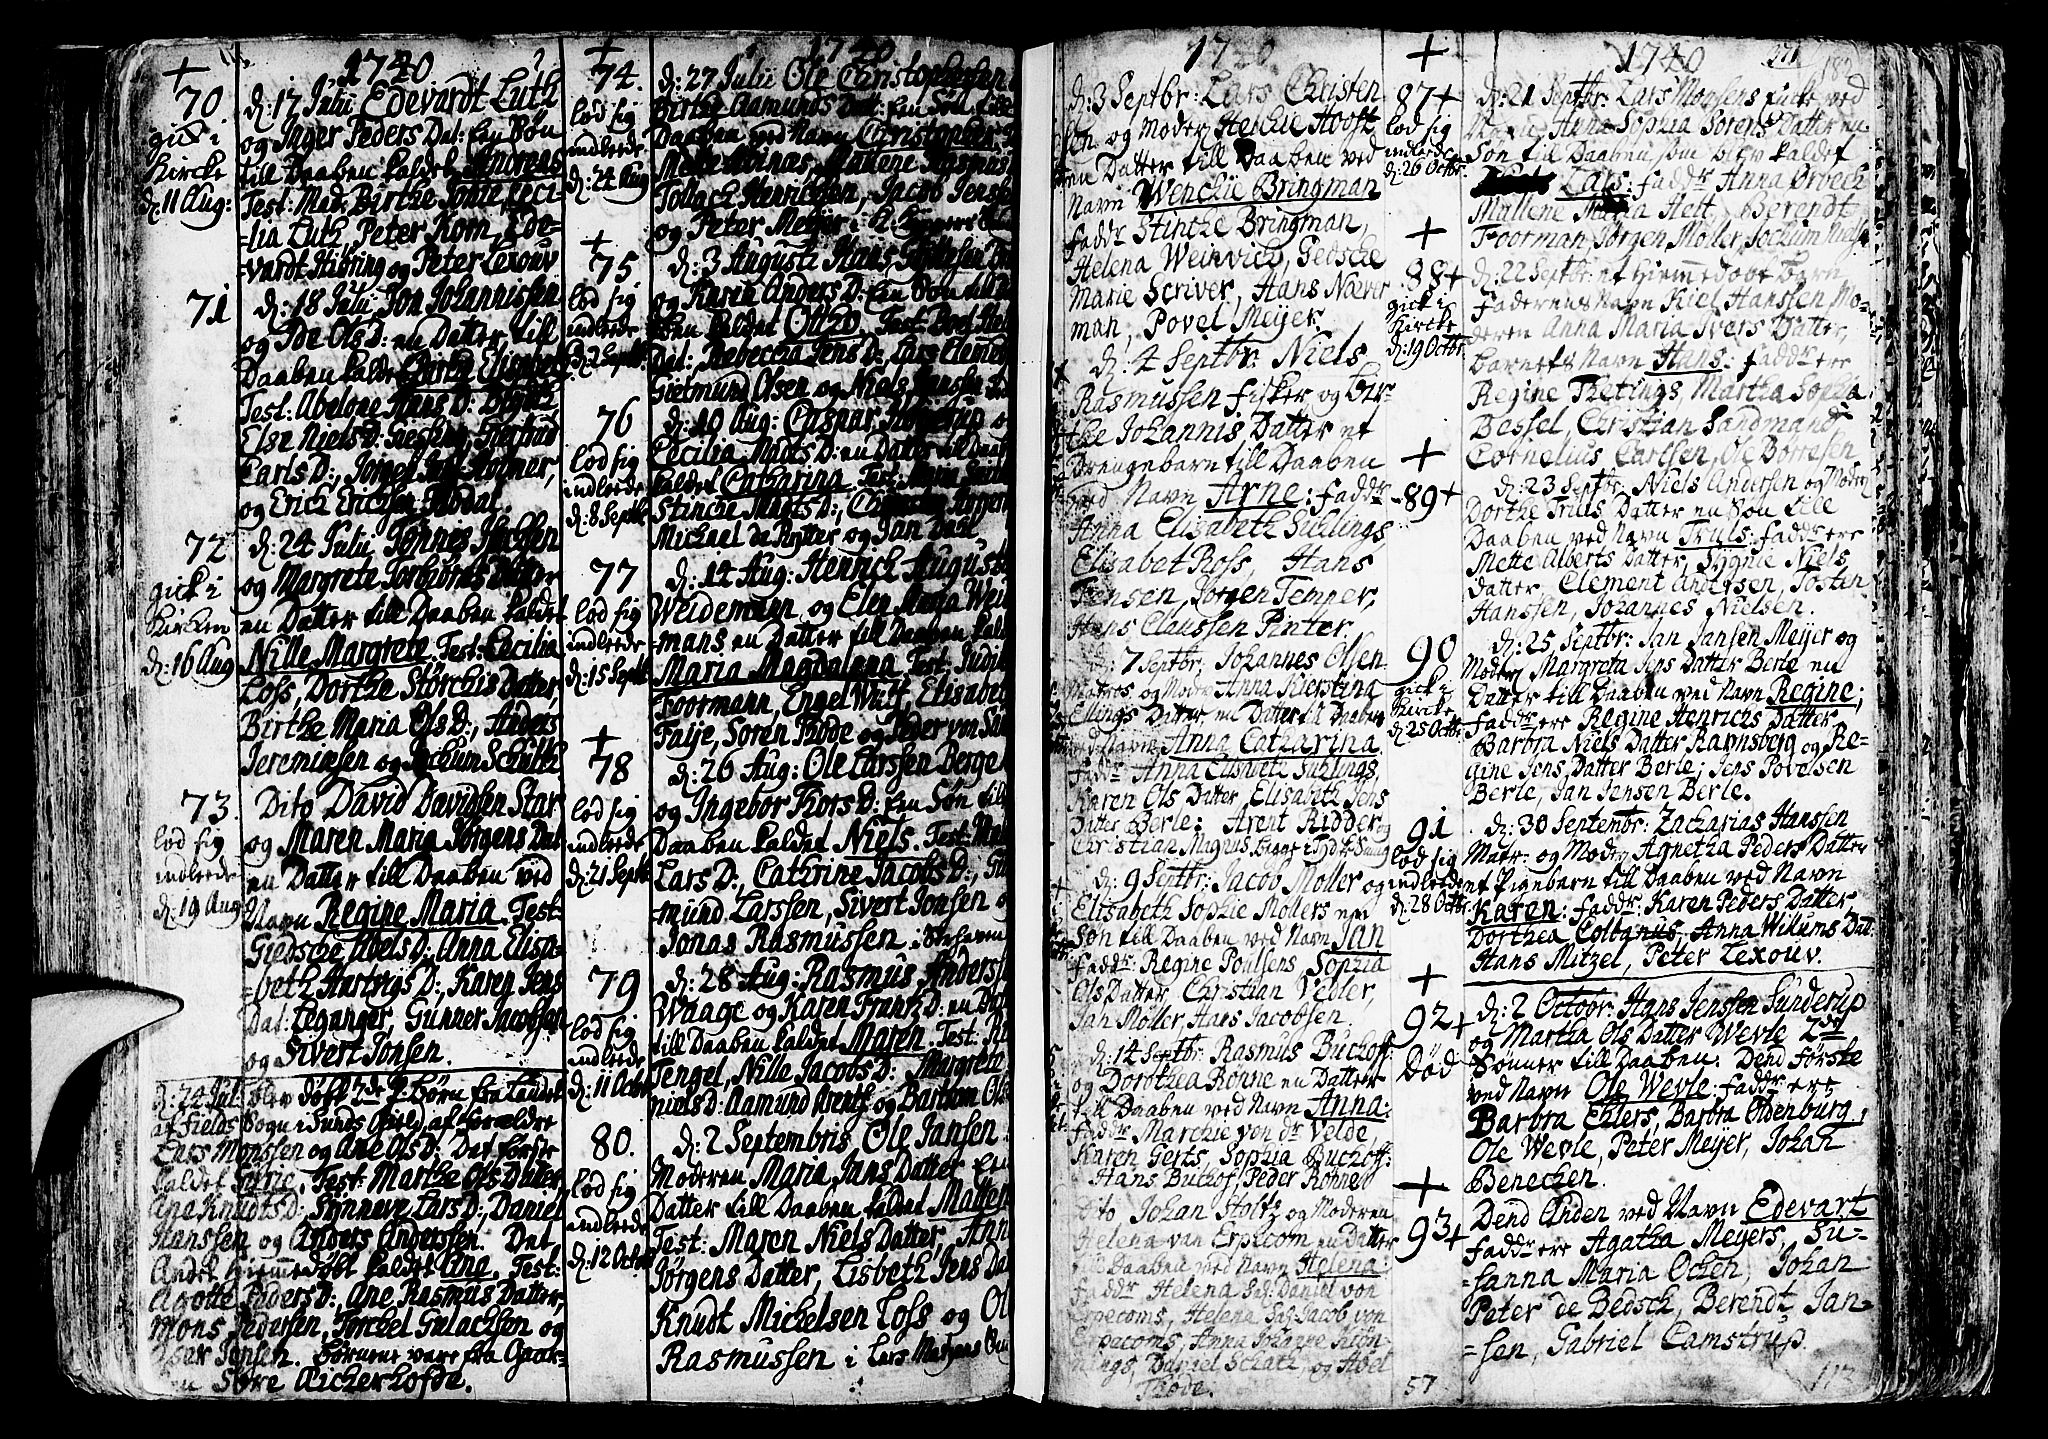 1740
+
70
gick i
Kircke
d: 11 Aug:
d: 17 Julii Edevardt Luth
og Inger Peders Dat: Een Søn
till Daaben kaldet Andreas
Test: Mad: Birthe Ceci
=lia Luth, Peter Korn, Ede=
vardt Hibring og Peter Lexouv
71
d: 18 Julii Jon Johannissen
og Ide Ols D: en Datter till
Daaben kaldt Elisabet
Test: Abelone Hans D:
Else Niels D:
Carls D:,
og Erich Erichsen
72
gick i
Kircken
d: 16 Aug
d: 24 Julii Tønnes
og Margrete Torbiørns Datter
en Datter till Daaben kaldet
Nille Margrete. Test: Cecilia
Loss, Dorthe Størchs Datter,
Birthe Maria Ols D:, Anders
Jeremiasen og Jochum Schult
73
lod sig
indleede
d: 19 Aug
Dito David Davidsen Star
og Maren Maria Jørgens Dat
en Datter till Daaben ved
Navn Regine Maria. Test:
Giedsche Abels D:, Anna Elisa=
=beth Hartvigs D:, Karen Jens
Dat: Leganger, Gunner Jacobsen
og Sivert Jonsen.
d: 24 Jul: blev døbt 2de børn fra Landet
af Fields Sogn i Sunds Gield af Forældre
Lars Monssen og Ane Ols D: Det første
kaldet Test: Marthe Ols Datter
Ane Knudts D: Synneve Lars D:, Daniel
Hanssen og Anders Anderssen. Det
Andet hiemmedøbt kaldet Ane. Test:
Peders D: Ane Rasmus Datter,
Mons Pedersen, Torchel Gulachsen og
Jensen. Børnene vare fra Gaar=
Søre Aickerhofde.
1740
+
74.
lod sig
indleede
d: 24 Aug
d: 27 Julii Ole Christophersen
Birthe Aamunds Dat: Een Søn till
Daaben ved Navn Christopher
Mette Linas, Mallene Rasmus
Tollach Henrichsen, Jacob Jens
og Peter Meyer i
+
75
lod sig
indleede
d: 2 Septbr
d: 3 Augusti Hans
og Karen Anders D: Een Søn till
ben kaldet Otto. Test: Boel
Dat: Rebeccha Jens D: Lars Clemend
Gietmund Olsen og Niels Hanssen
76
lod sig
indleede
d: 8 Septb
d: 10 Aug: Caspar
Cecilia Marts D: en Datter till
kaldet Catharina. Test:
Stincke Marts D:,
Michael de Rytter og Jan Dael
77
lod sig
indleede
d: 15 Septb
d: 14 Aug: Henrich August
Weidemann og Elen Anna Wei
=mans en Datter till Daaben kald
Maria Magdalena. Test: Judit
Foormann, Engel Wulf, Elisabet
Faije, Søren Rode og Peder von
+
78
lod sig
indleede
d: 21 Septb
d: 26 Aug: Ole Larssen Berge
og Ingebor Kors D: Een Søn till
Daaben kaldet Niels. Test:
Lars D:, Cathrine Jacobs D:,
mund Larssen, Sivert Jonsen
Jonas Rasmussen
79
lod sig
indleede
d: 11 Octob
d: 28 Aug: Rasmus Anderss
Waage og Karen Frantz D: en Dat
till Daaben kaldet Maren. Test:
Tengel, Nille Jacobs D: Margrete
Niels D: Aamund Arent og Bartom Ols
80.
lod sig
indleede
d: 12 Octob
d: 2 Septembris Ole Jansen
Moderen Maria Jans Datter Een
Datter till Daaben kaldet
Test: Maren Niels Datter, Ann
Jørgens Datter, Lisbeth Jens Da
Knudt Michelsen Loss og Ol
Rasmussen i Lars
1740
d: 3 Septbr: Lars Christen
sen og Moder Henchie Hoost
en Datter till Daaben ved
Navn Wenchie Bringman
Faddr Stinche Bringman,
Helena Weinvich, Gedsche
Marie Scriver, Hans Nærer
man, Povel Meyer.
d: 4 Septbr: Niels
Rasmussen fisker og Bir=
the Johannis Datter et
Drengebarn till Daaben
ved Navn Arne: Faddr
Anna Elizabeth Suhlings,
Elisabet Ross, Hans
Jensen, Jørgen Temper,
Hans Claussen Pinter.
d: 7 Septbr: Johannes Olsen
Matros og Modr Anna Kierstina
Ellings Datter, en Datter till Daaben
ved Navn Anna Catharina.
Faddr Anna Elisabeth Suhlings,
Karen Ols Datter, Elisabeth Jens
Datter Berle: Arent Ridder og
Christian Magnus
d: 9 Septbr: Jacob Møller og
Elisabeth Sophie Møllers een
Søn till Daaben ved Navn Jan
Faddr: Regine Poulsens, Sophia
Ols Datter, Christian Vedler,
Jan Møller, Hans Jacobsen.
d: 14 Septbr: Rasmus Buchoff
og Dorothea Rønne en Datter
till Daaben ved Navn Anna:
Faddr Marchie von dr Velde,
Karen Gerts, Sophia Buchoff:
Hans Buchof, Peder Rønne
Dito Johan Stoltz og Moderen
Helena van Erpecom en Datter
till Daaben ved Navn Helena:
Faddr Helena Sal: Daniel von
Erpecoms, Helena Sal: Jacob von
Erpacoms, Anna
nings, Daniel Schatz, og Abel
Rode.
+
87+
lod sig
indleede
d: 26 Octbr.
+
88+
gick i
Kircke
d: 19 Octbr.
+
89+
90
gick i
Kircke
d: 25 Octbr
91
lod sig
indleede
d: 28 Octbr.
+
92+
Død
+
93+
57
1740
371
182
d: 21 Septbr: Lars Monsens ved
Navn Anna Sophia Sørens Datter en
Søn till Daaben som blev kaldet
Lars: Faddr Anna Ørbech
Mallene Maria Helt, Berendt
Foorman Jørgen Møller, Jochum
d: 22 Septbr: et hiemmedøbt Barn
Faderens Navn Kiel Hanssen Mo=
deren Anna Maria Ivers Datter,
Barnets Navn Hans: Faddr ere
Regine Thetings, Martha Sophia
Bessel, Christian Sandmand
Cornelius Carlsen, Ole Børresen
d: 23 Septbr: Niels Andersen og Modern
Dorthe Truls Datter en Søn till
Daaben ved Navn Truls: Faddr ere
Mette Alberts Datter, Sygnie Niels
Datter, Clement Andersen, Tosten
Hanssen, Johannes Nielsen.
d: 25 Septbr: Jan Jansen Meyer og
Modern Margreta Jens Datter Berle en
Datter till Daaben ved Navn Regine;
Faddr ere Regine Henrichs Datter
Barbra Niels Datter Ramsberg og Re=
gine Jens Datter Berle; Jens Povelsen
Berle, Jan Jensen Berle.
d: 30 Septembr: Zacharias Hanssen
Matr: og Modern Agnetha Peders Datter
et Pigebarn till Daaben ved Navn
Karen: Faddr: Karen Peders Datter,
Dorthea Colbanus, Anna Willums Dat:
Hans Mitzel, Peter Lexouv.
d: 2 Octobr: Hans Jenssen Sunderup
og Martha Ols Datter Wevle 2de
Sønner till Daaben: Dend Første
ved Navn Ole Wevle: Faddr ere
Barbra Ehlers, Barbra Oldenburg,
Ole Wevle, Peter Meyer, Johan
Benechen.
Dend Anden ved Navn Edevart
Faddr ere Agatha Meyers, Su=
=sanna Maria Ochen, Johan
Peter de Bedsch, Berendt Jan=
=sen, Gabriel Camstrup.
113